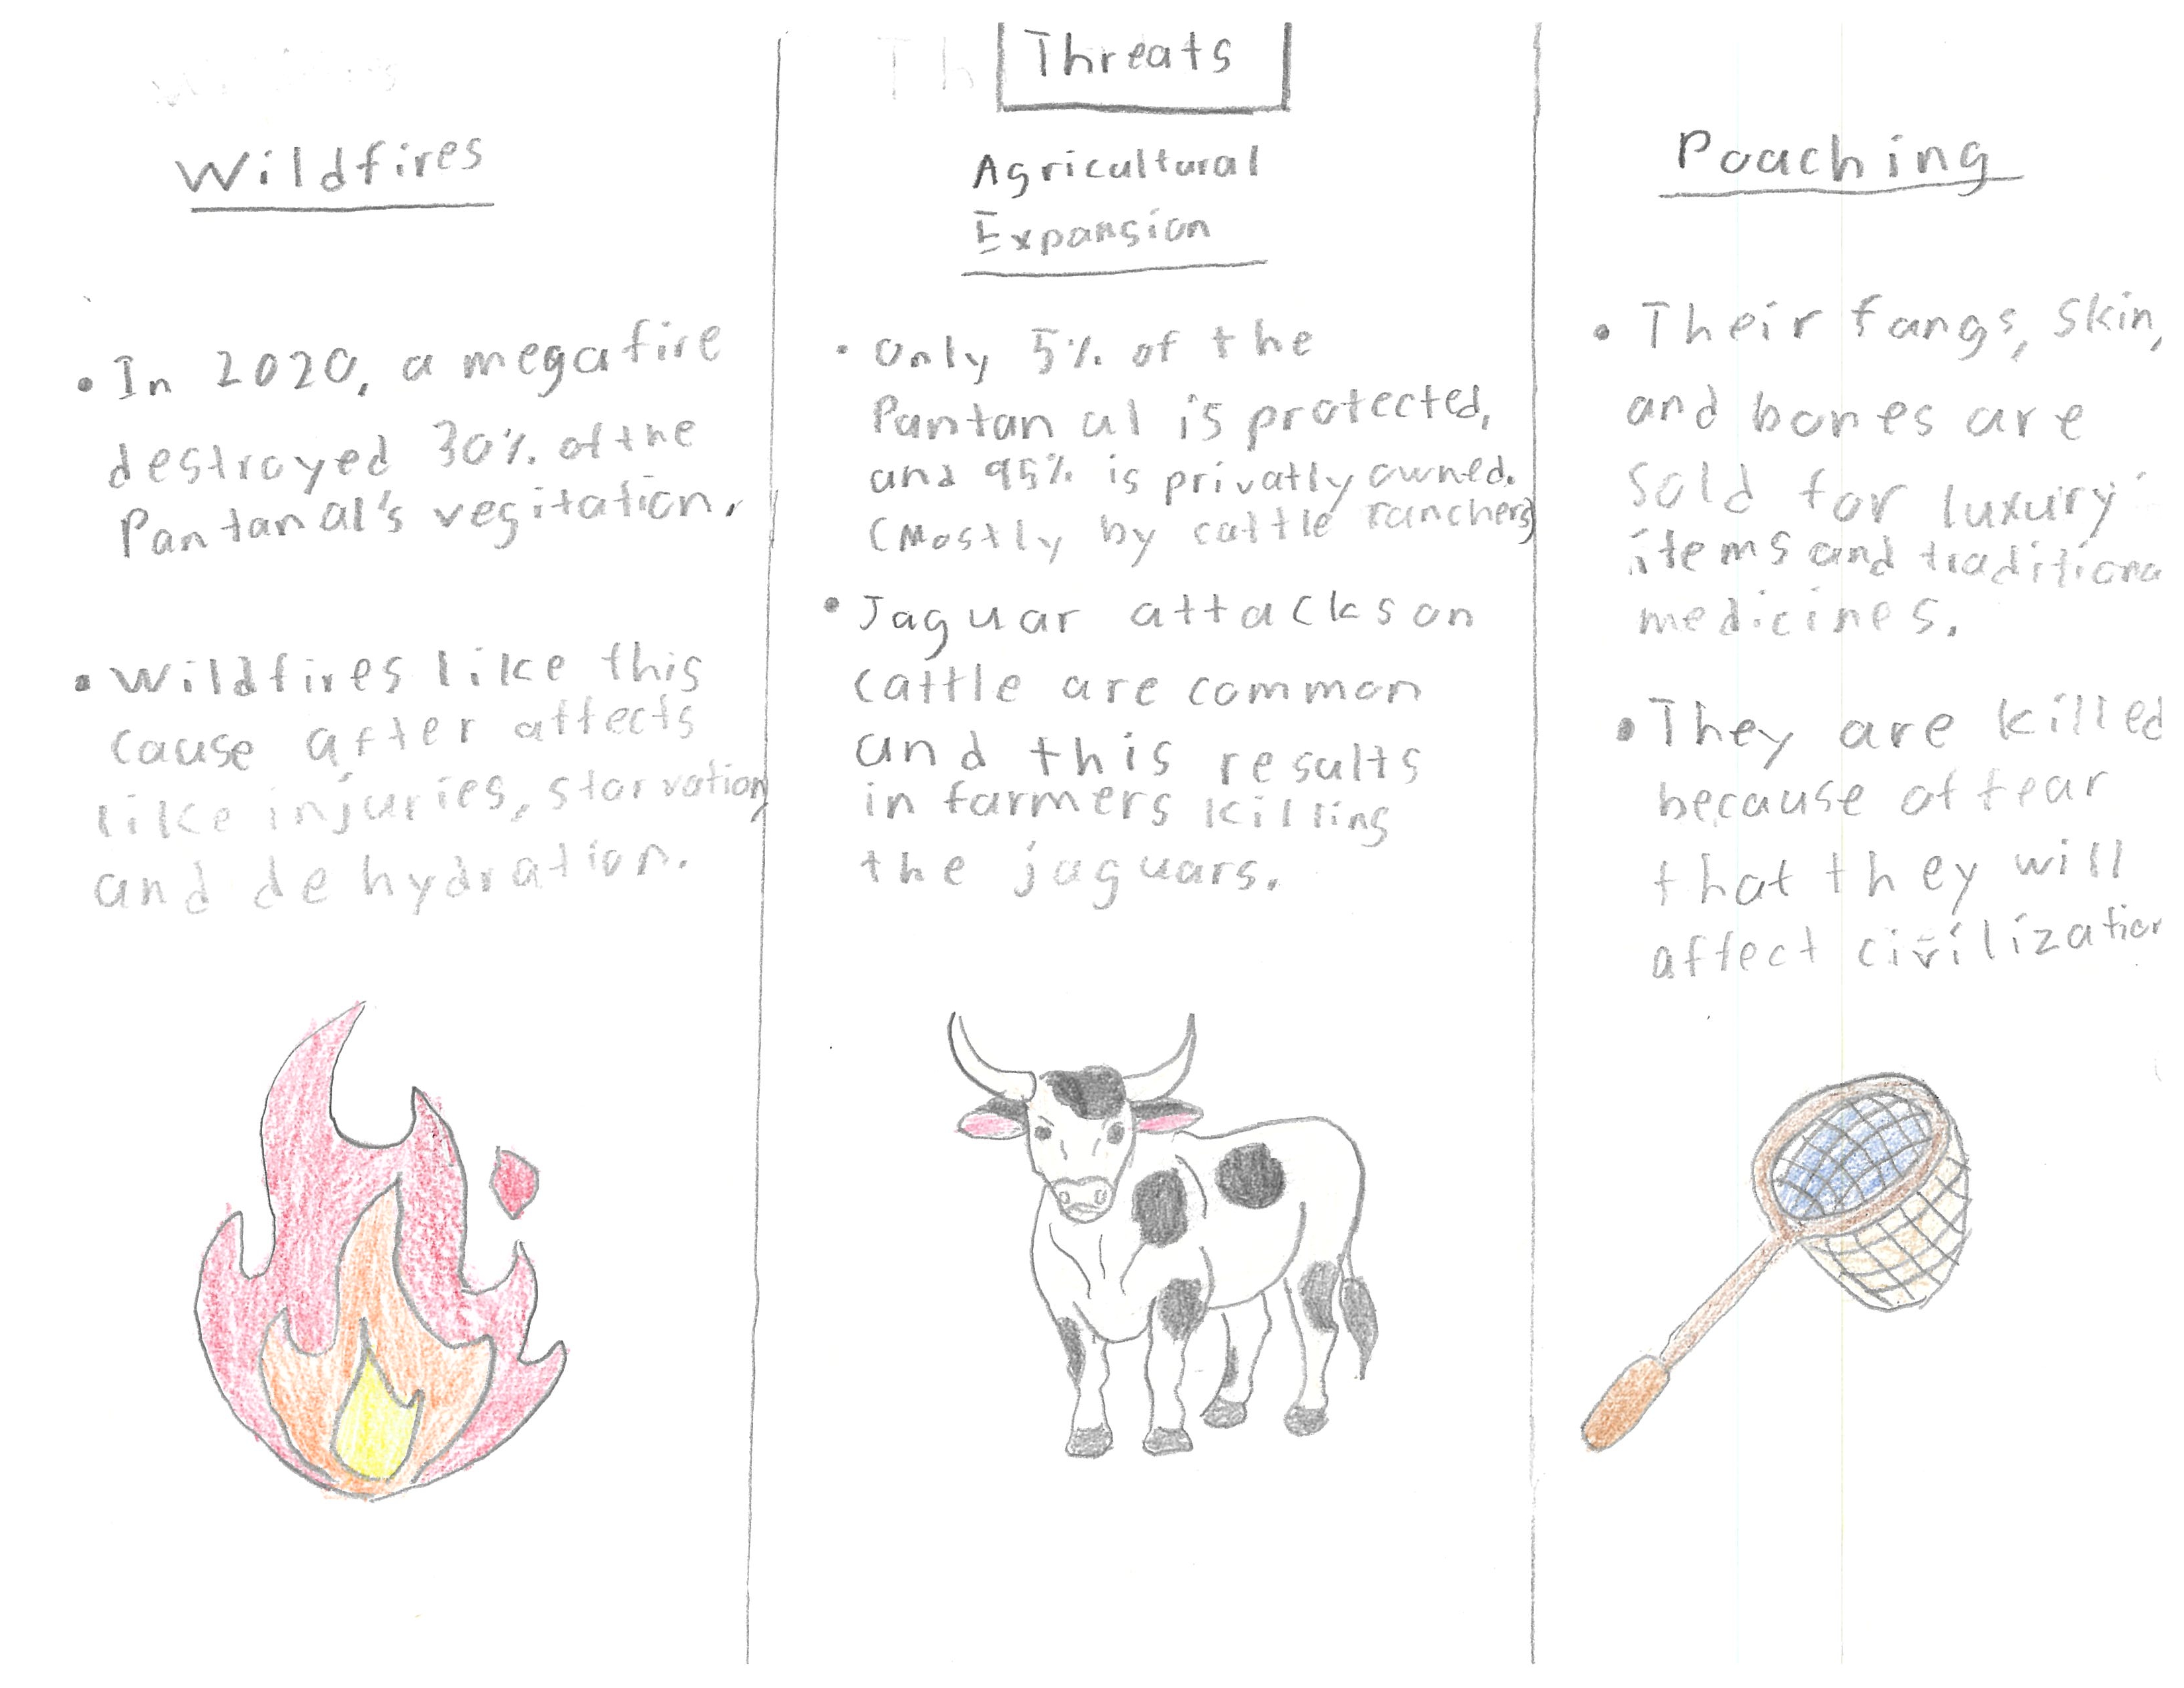 Threats
Wildfires
• In 2020, a megafire
destroyed 30% of the
Pantanal's vegitation.
• Wildfires like this
cause after affects
like injuries, starvation,
and dehydration.
Agricultural
Expansion
• Only 5% of the
Pantanal is protected,
and 95% is privatly owned.
(Mostly by cattle ranchers)
• Jaguar attacks on
cattle are common
and this results
in farmers killing
the jaguars.
Poaching
• Their fangs, skin,
and bones are
sold for luxury
items and traditiona
medicines.
• They are killed
because of fear
that they will
affect civilization